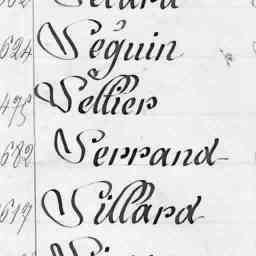 624 Séguin
475 Sellier
682 Serrand
617 Sillard